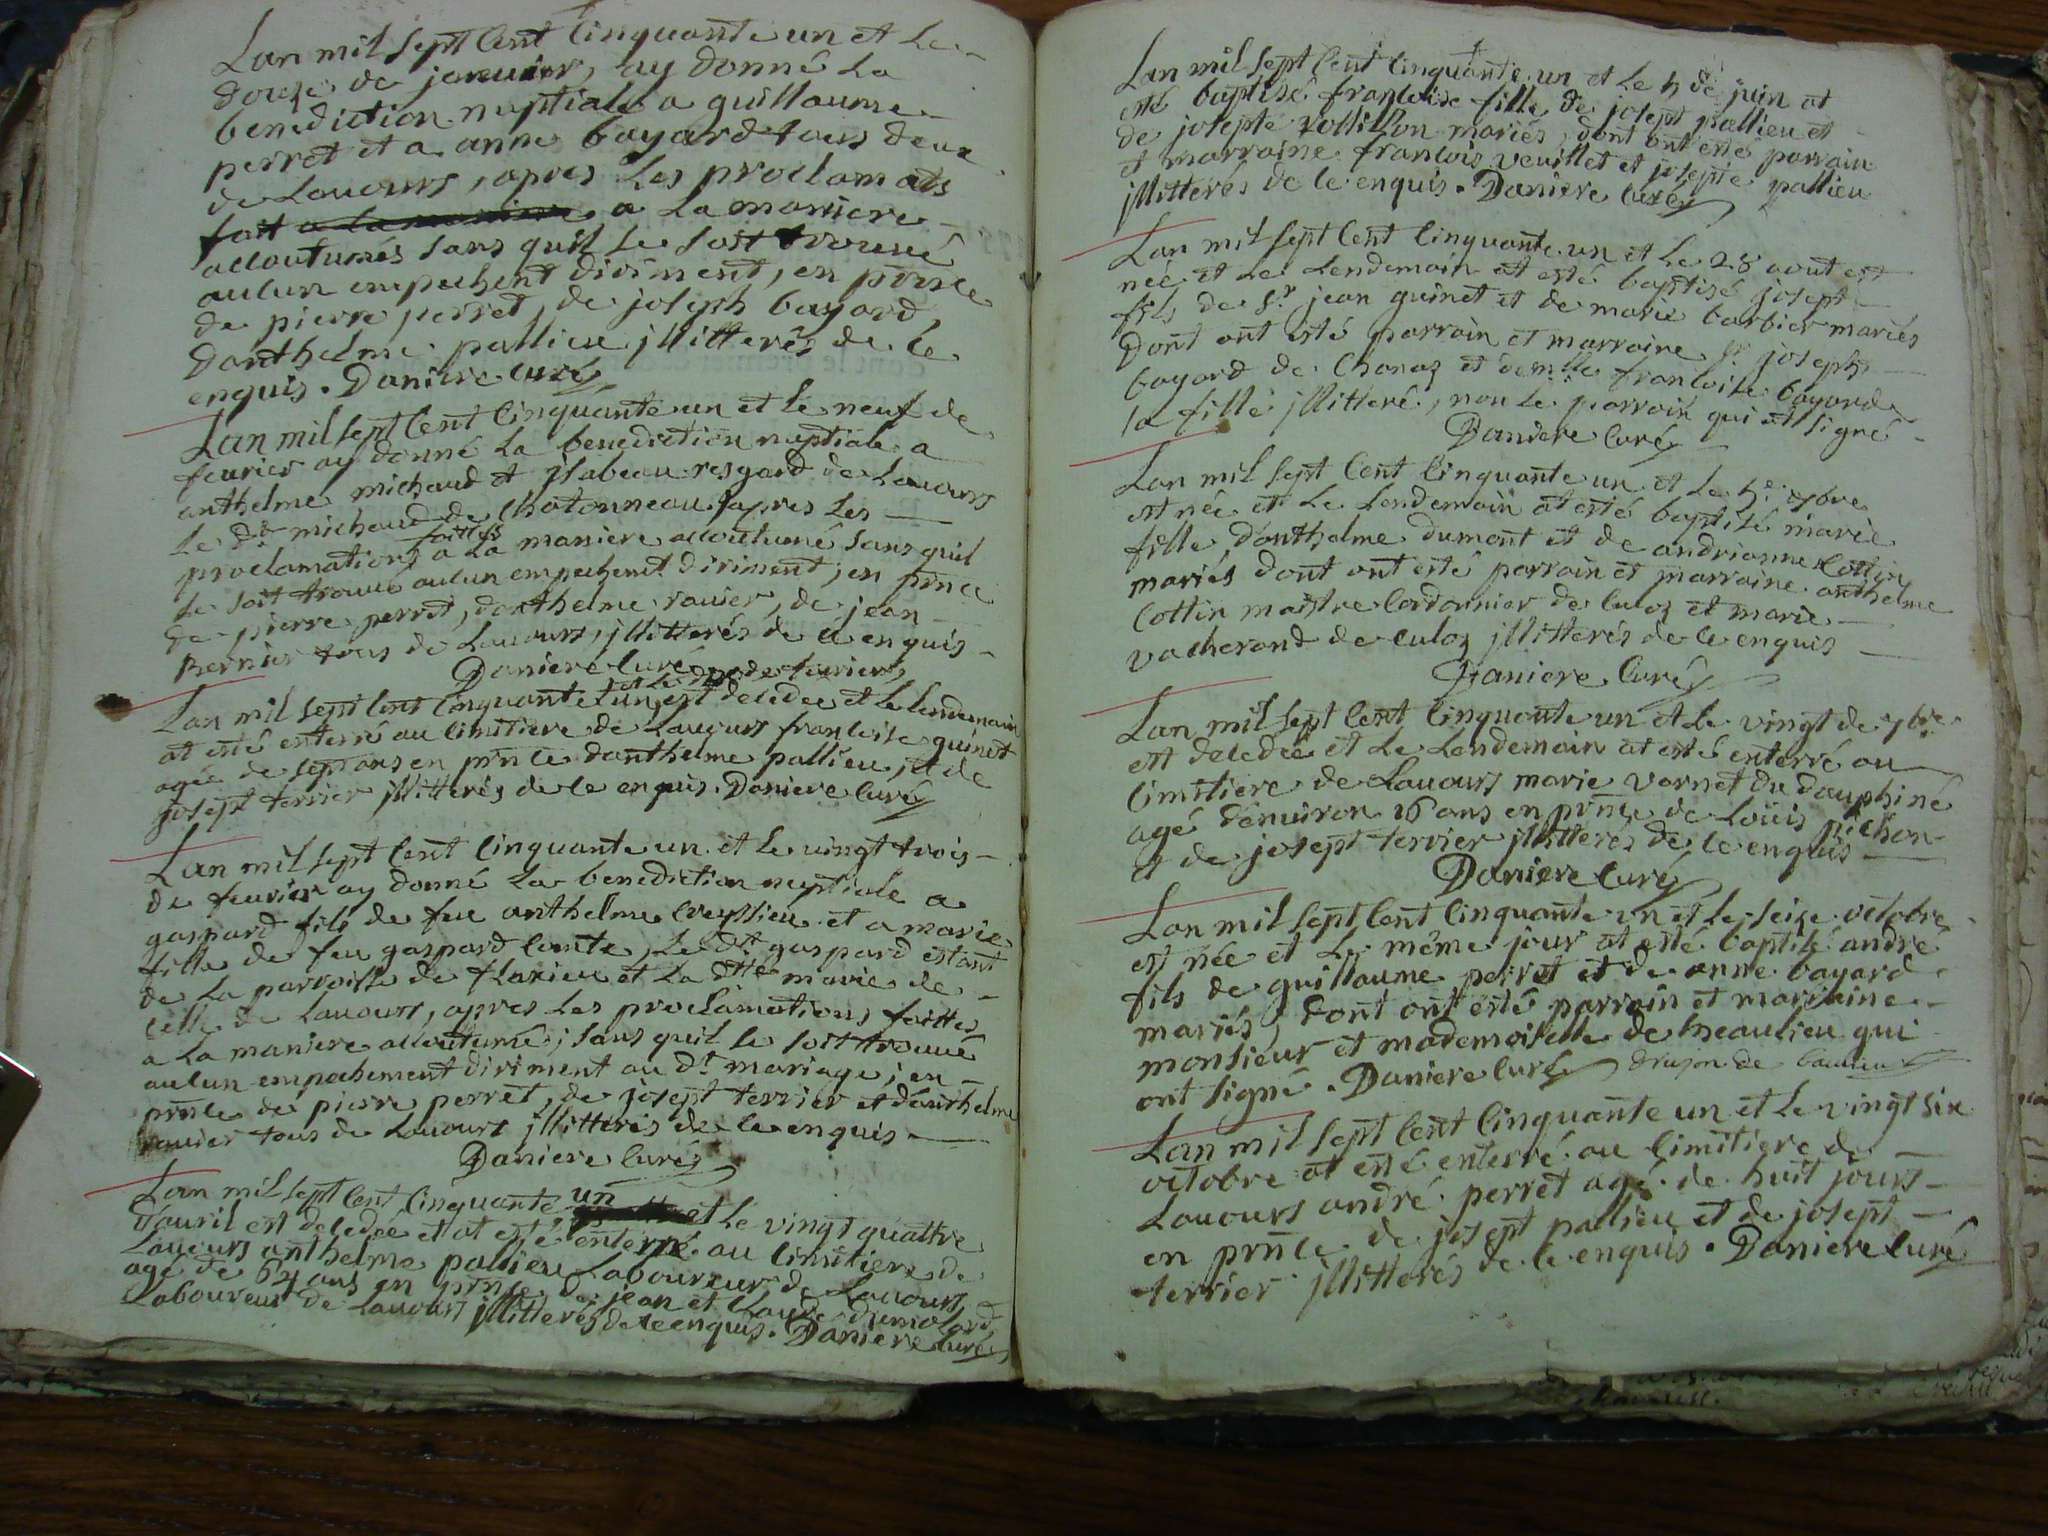 Lan mil sept Cent Cinquante un et Le
douze de januier, ay donné La
benediction nuptiale a guillaume
perret et a anne bayard tous deux
de Lauours, apres Les proclamaōs
fait a la maniere a La maniere
accoutumés sans quil se soit trouué
aucun empechent diriment, en prn̄ce
de pierre perret, de joseph bayard,
danthelme pallieu jllitterés de ce
enquis. Daniere Curé
Lan mil sept Cent Cinquante un et le neuf de
feurier ay donné La benediction nuptiale a
anthelme michaud et jsabeau resgard de Lauours
Le dt michaud de Chatonneau apres Les
faittes
proclamations a La maniere accoutumé sans quil
se soit trouué aucun empechemt diriment, en prn̄ce
de pierre perret, danthelme rauier, de jean
Bernier tous de Lauours, jllitterés de ce enquis
Daniere Curé
et Le de feurier
Lan mil sept Cent Cinquante et un, est decedee et Le Lendemain
at esté enterré au Cimitiere de Lauours francoise guinet
agée de sept ans en prn̄ce danthelme pallieu, et de
josept terrier jllitterés de ce enquis. Daniere Curé
Lan mil sept Cent Cinquante un et le vingt trois
de feurier ay donné La benediction nuptiale a
gaspard fils de feu anthelme Creyssieu et a marie
fille de feu gaspard Comte, Le dt gaspard estant
de La parroisse de flaxieu et La dtte marie de
Celle de Lauours, apres Les proclamations faittes
a La maniere accoutumée, sans quil se soit trouué
aucun empechement diriment au dt mariage, en
prn̄ce de pierre perret, de josept terrier et danthelme
rauier tous de Lauours jllitterés de ce enquis
Daniere Curé
Lan mil sept Cent Cinquante un et Le vingt quattre
dauril est decedée et at esté enterré au Cimitiere de
Lauours anthelme pallieu Laboureur de Lauours
agé de 64 ans en prn̄ce de jean et Claude dumolard
Laboureur de Lauours jllitterés de ce enquis. Daniere Curé
Lan mil sept Cent Cinquante un et Le 5 de juin at
esté baptisé francoise fille de josept pallieu et
de josepte vollisson mariés, dont ont esté parrain
et marraine francois veuillet et josepte pallieu
jllitterés de ce enquis. Daniere Curé
Lan mil sept Cent Cinquante un et Le 28 aout est
née et Le Lendemain at esté baptisé josept
fils de Sr jean guinet et de marie barbier mariés
Dont ont esté parrain et marraine Sr joseph
bayard de Chanaz et demlle francoise bayard
sa fille jllitteré, non Le parrain qui at signé
Daniere Curé
Lan mil sept Cent Cinquante un et Le 5e 7bre
est née et Le Lendemain at esté baptisé marie
fille danthelme dumont et de andrianne Cottin
mariés dont ont esté parrain et marraine anthelme
Cottin maistre Cordonnier de Culoz et marie
vacherand de Culoz jllitterés de ce enquis
Daniere Curé
Lan mil sept Cent Cinquante un et Le vingt de 7bre
est decedeé et Le Lendemain at esté enterré au
Cimitiere de Lauours marie vornet du dauphiné
agé denuiron 16 ans en prn̄ce de Loüis pichon
et de josept terrier jllitterés de ce enquis
Daniere Curé
Lan mil sept Cent Cinquante un et Le seize octobre
est née et Le même jour at esté baptisé andré
fils de guillaume perret et de anne bayard
mariés, dont ont esté parrain et marraine
monsieur et mademoiselle de beaulieu qui
ont signé. Daniere Curé drujon de beaulieu
Lan mil sept Cent Cinquante un et Le vingt six
octobre at esté enterré au Cimitiere de
Lauours andré perret agé de huit jours
en prn̄ce de josept pallieu et de josept
terrier jllitterés de ce enquis. Daniere Curé